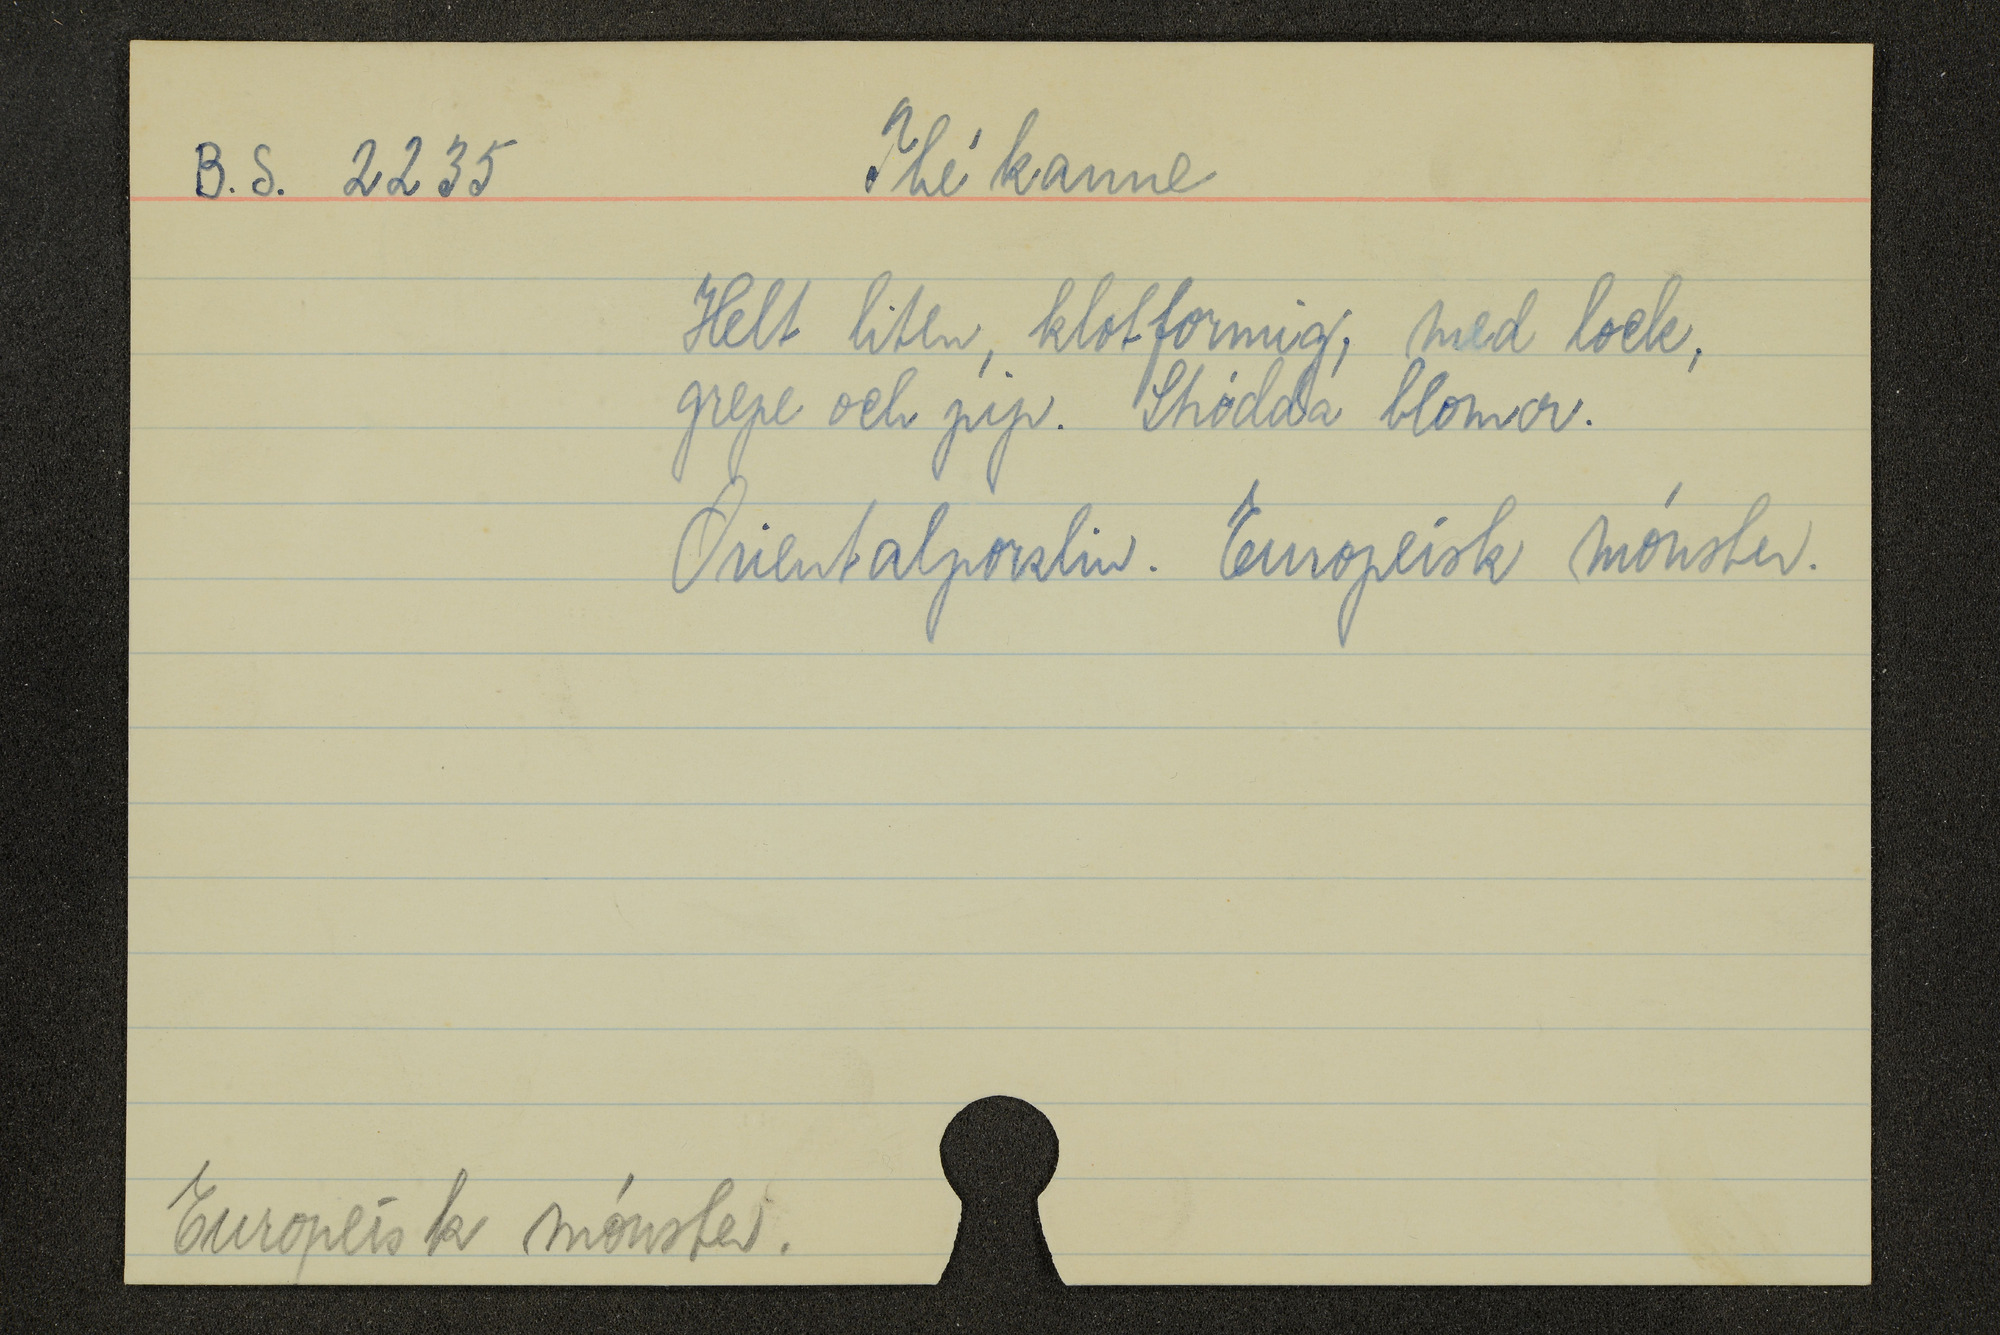 B.S. 2235 Thékanne
Helt liten, klotformig, med lock,
grepe och pip. Ströddа blomor.
Orientalporslin. Europeisk mónster.
Europeisk mónster.